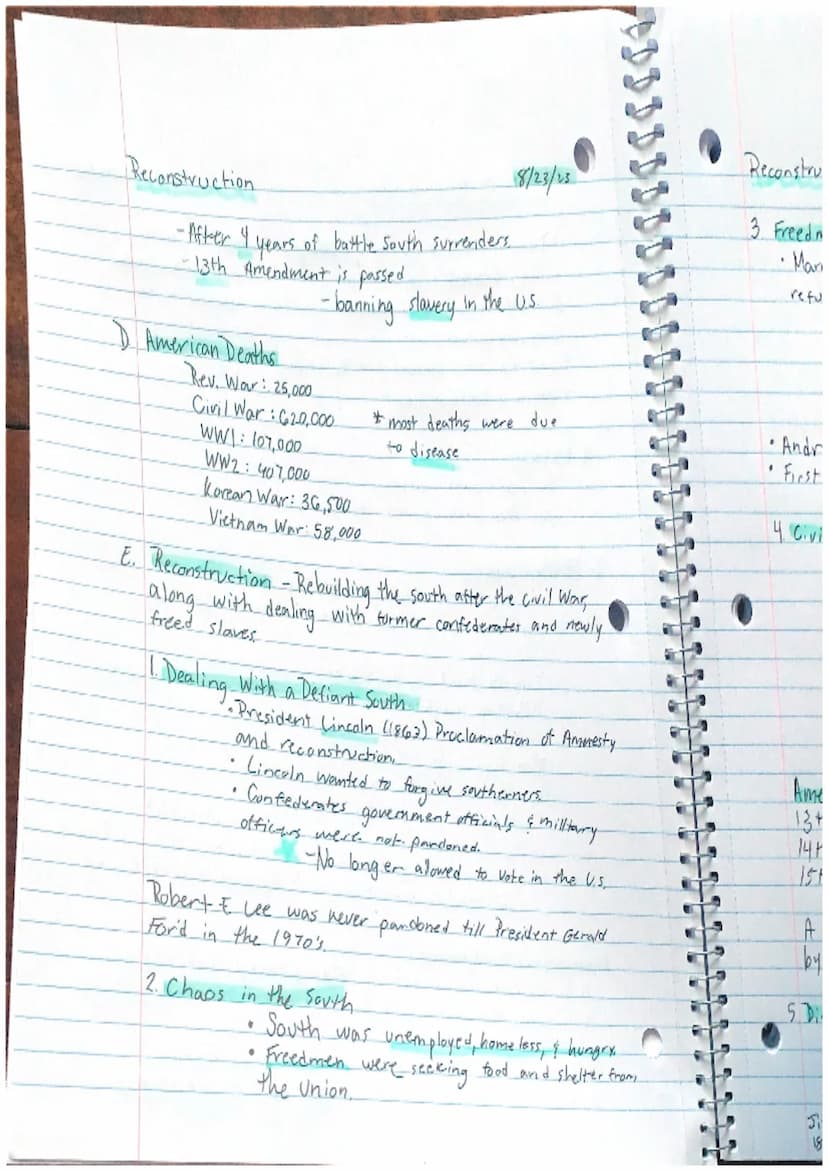 Reconstruction 8/23/23
- After 4 years of battle South surrenders
- 13th Amendment is passed
- banning slavery in the US
D American Deaths
Rev. War: 25,000
Civil War: 620,000 * most deaths were due
WW1: 107,000 to disease
WW2: 407,000
Korean War: 36,500
Vietnam War: 58,000
E. Reconstruction - Rebuilding the south after the Civil War,
along with dealing with former confederates and newly
freed slaves
1. Dealing With a Defiant South
• President Lincoln (1863) Proclamation of Amnesty
and reconstruction.
• Lincoln wanted to forgive southerners.
• Confederates government officials & military
officers were not pardoned.
- No longer alowed to vote in the U.S.
Robert E Lee was never pardoned till President Gerald
Ford in the 1970's.
2. Chaos in the South
• South was unemployed, homeless, & hungry.
• Freedmen were seeking food and shelter from,
the Union.
Reconstru
3 Freedm
• Man
refu
• Andr
• First
4 Civi
Ame
13t
14t
15t
A
by
5 Di